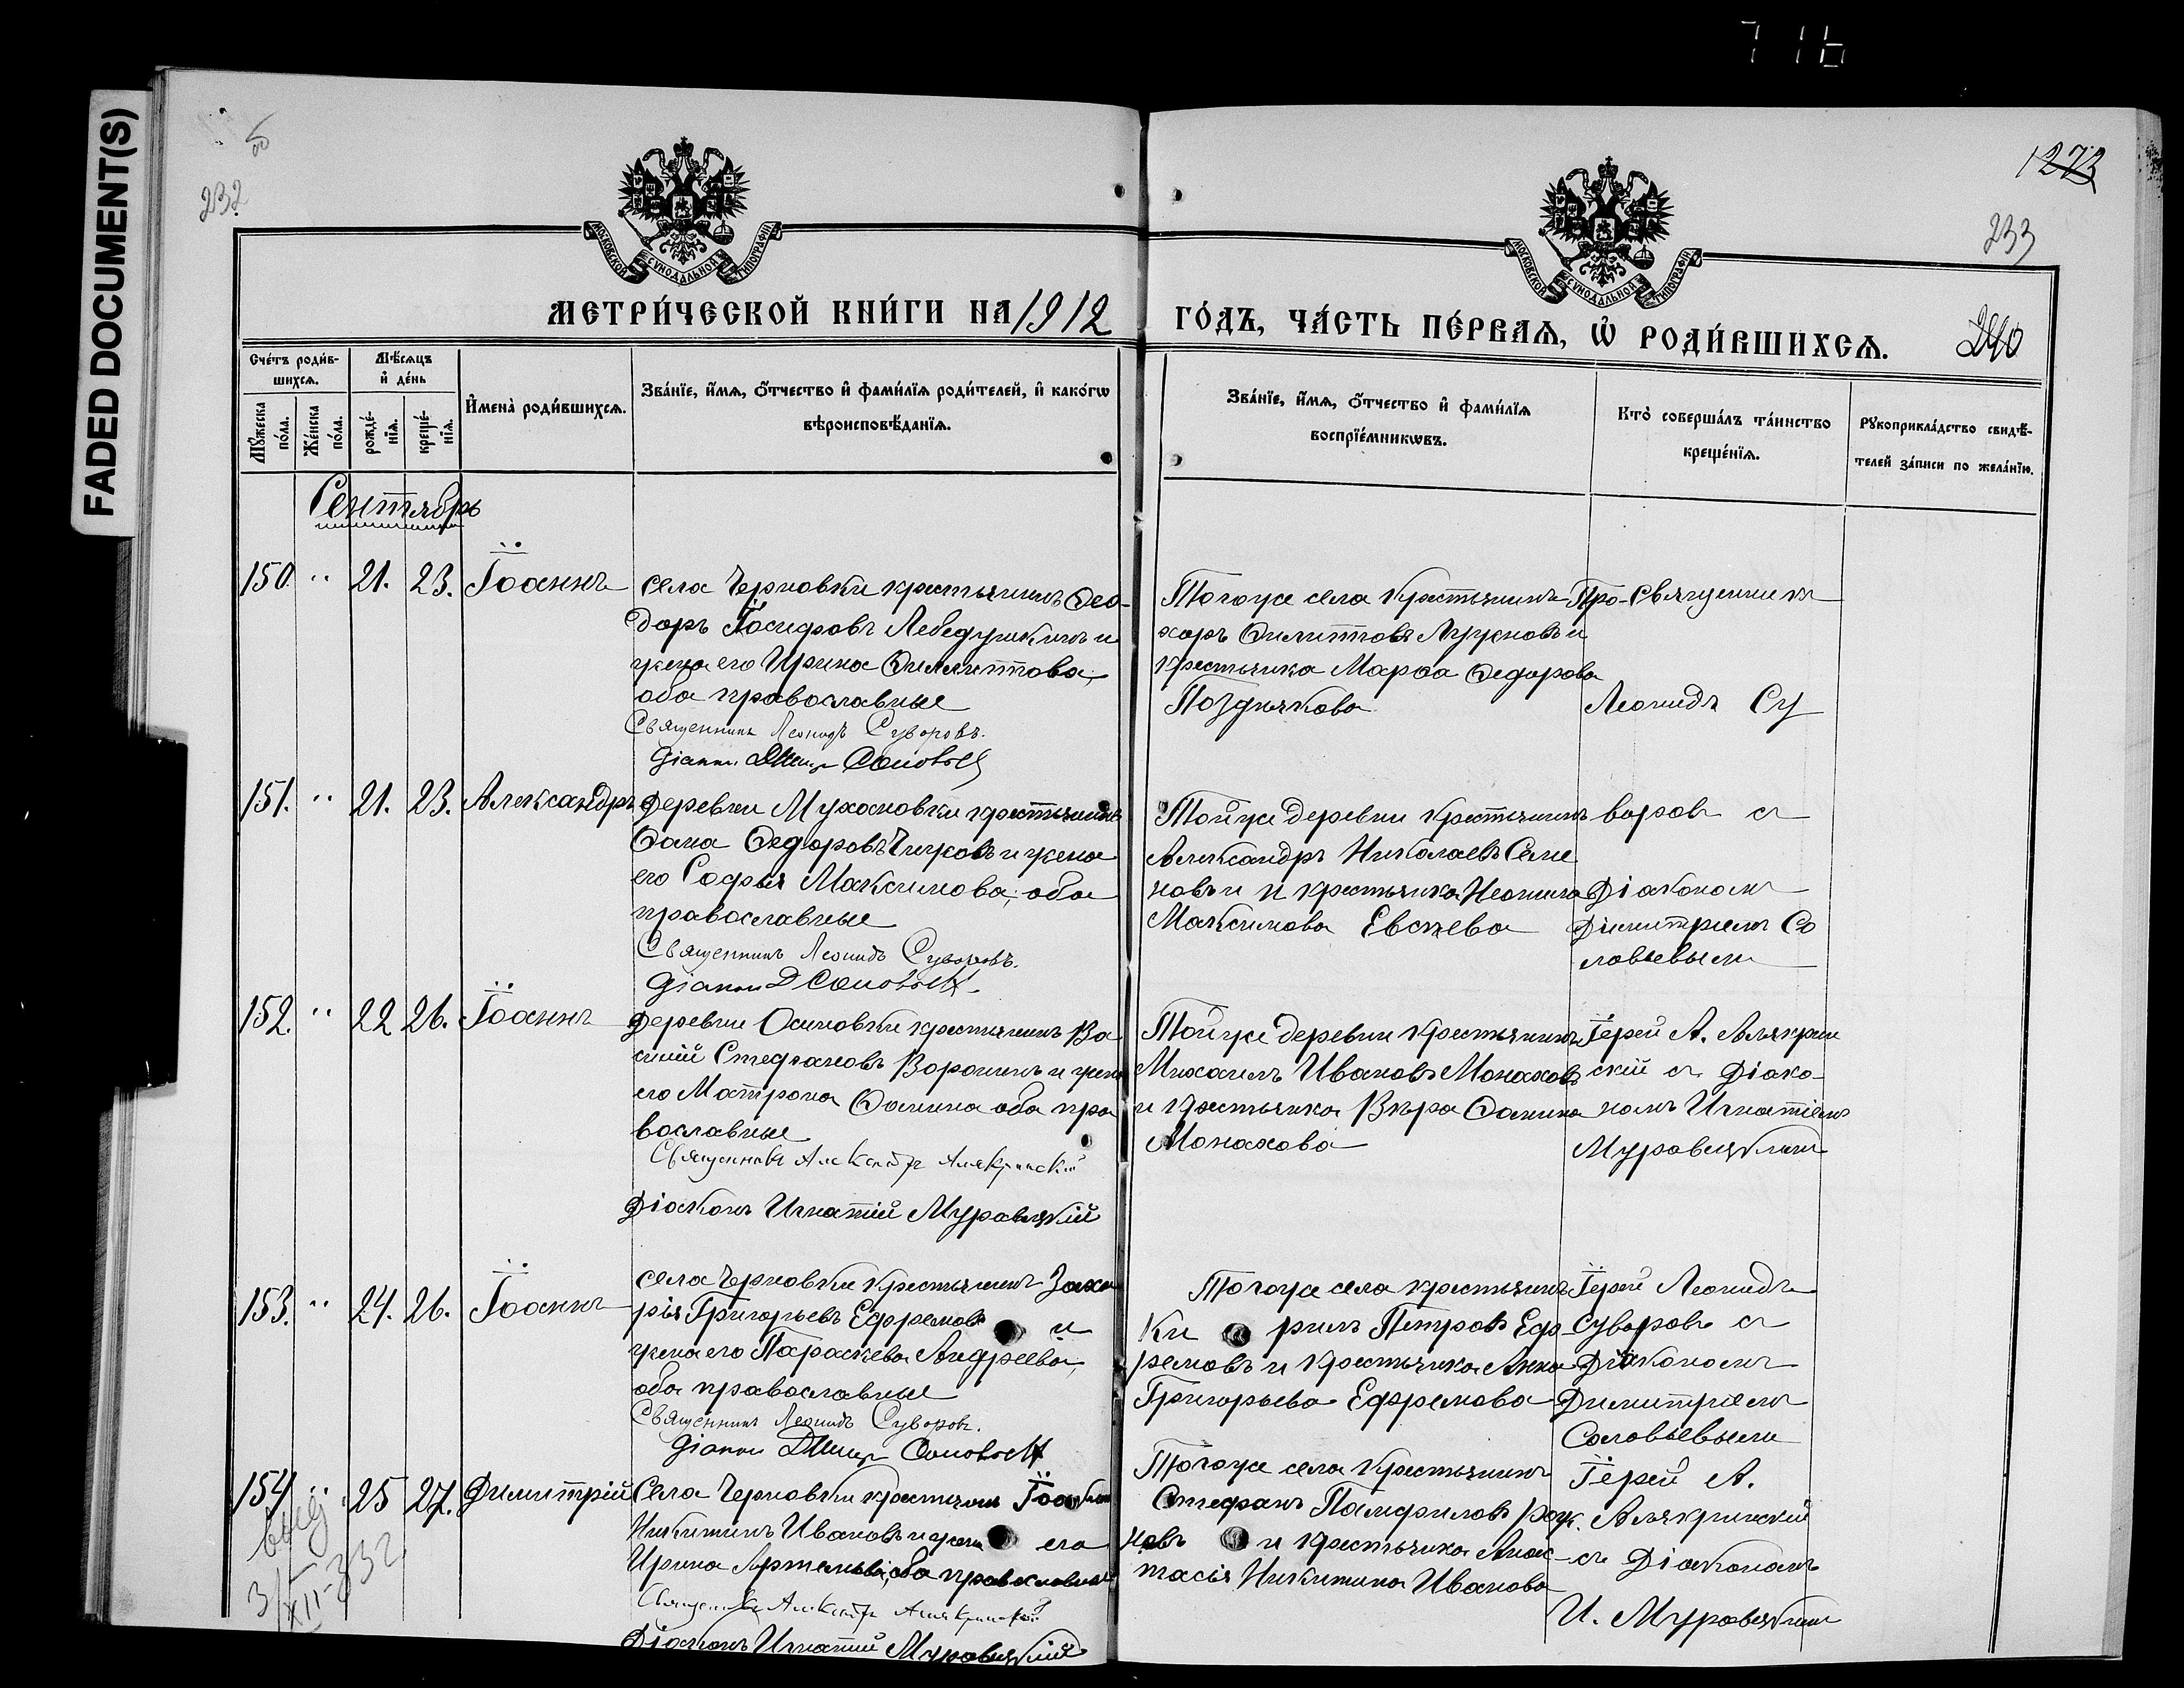 FADED DOCUMENT(S)
716
232
1273
233
240
МОСКОВСКОЙ СѴНОДАЛЬНОЙ ТИПОГРАФІИ
МОСКОВСКОЙ СѴНОДАЛЬНОЙ ТИПОГРАФІИ
МЕТРИ́ЧЕСКОЙ КНИ́ГИ НА 1912
ГО́ДЪ, ЧА́СТЬ ПЕ́РВАѦ, Ѿ РОДИ́ВШИХСѦ.
Сче́тъ роди́в-
шихсѧ.
Мꙋ́жеска
по́ла.
Же́нска
по́ла.
Мѣ́сѧцъ
и҆ де́нь
рожде́-
нїѧ.
креще́-
нїѧ.
И҆мена̀ роди́вшихсѧ.
Зва́нїе, и҆́мѧ, ѻ҆́тчество и҆ фами́лїѧ роди́телей, и҆ како́гѡ
вѣроисповѣ́данїѧ.
Зва́нїе, и҆́мѧ, ѻ҆́тчество и҆ фами́лїѧ
воспрїе́мникѡвъ.
Кто̀ соверша́лъ та́инство
креще́нїѧ.
Рꙋкоприкла́дство свидѣ́-
телей за́писи по жела́нїю.
Сентябрь
150 " 21. 23. Іоаннъ
села Черновки крестьянинъ Ѳео-
доръ Іосифовъ Лебедушкинъ и
жена его Ирина Филиппова,
оба православные
Священникъ Леонидъ Суворовъ.
Діаконъ Соловьев
Тогоже села крестьянинъ Про-
хоръ Филипповъ и
крестьянка Марѳа Ѳедорова
Позднякова
Священникъ
Леонидъ Су
151. " 21. 23. Александръ
деревни Мухановки крестьянинъ
Ѳома Ѳедоровъ и жена
его Софья Максимова, оба
православные
Священникъ Леонидъ Суворовъ.
Діаконъ Д Соловьев
Тойже деревни крестьянинъ
Александръ Николаевъ Семе
новъ и крестьянка
Максимова Евсѣева
воровъ съ
Діакономъ
Димитріемъ Со
ловьевымъ
152. " 22 26. Іоаннъ
деревни Осиновки крестьянинъ Ва
силій Стефановъ Воронинъ и жена
его Матрона Ѳомина оба пра
вославные
Священникъ Александръ Алякринскій
Діаконъ Игнатій Муравецкій
Тойже деревни крестьянинъ
Михаилъ Ивановъ Монаховъ
и крестьянка Вѣра Ѳомина
Монахова
Іерей А. Алякрин
скій съ Діако-
номъ Игнатіемъ
Муравецкимъ
153. " 24. 26. Іоаннъ
села Черновки крестьянинъ Заха
рія Григорьевъ Ефремовъ и
жена его Параскева Андреева,
оба православные
Священникъ Леонидъ Суворовъ.
Діаконъ Соловьев
Тогоже села крестьянинъ
Ки рилъ Петровъ Еф-
ремовъ и крестьянка Анна
Григорьева Ефремова
Іерей Леонидъ
Суворовъ съ
Діакономъ
Димитріемъ
Соловьевымъ
154 " 25 27. Димитрій
Села Черновки крестьянинъ Іоаннъ
Никитинъ Ивановъ и жена его
Ирина Артемьева, оба православные
Священникъ Александръ Алякринскій
Діаконъ Игнатій Муравецкій
Тогоже села крестьянинъ
Стефанъ Памфиловъ
новъ и крестьянка Анас-
тасія Никитина Иванова
Іерей А.
Алякринскій
съ Діакономъ
И. Муравецкимъ
3/XII-33г.